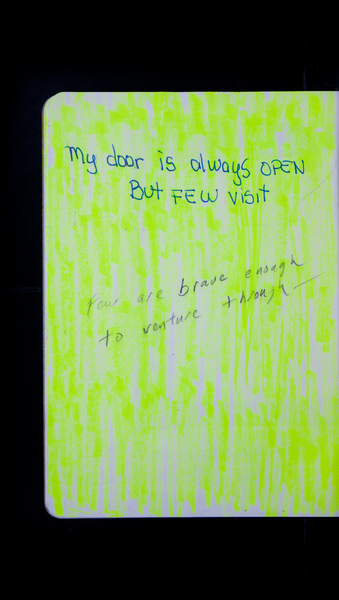 My door is always OPEN
But FEW visit
Few are brave enough
to venture through—